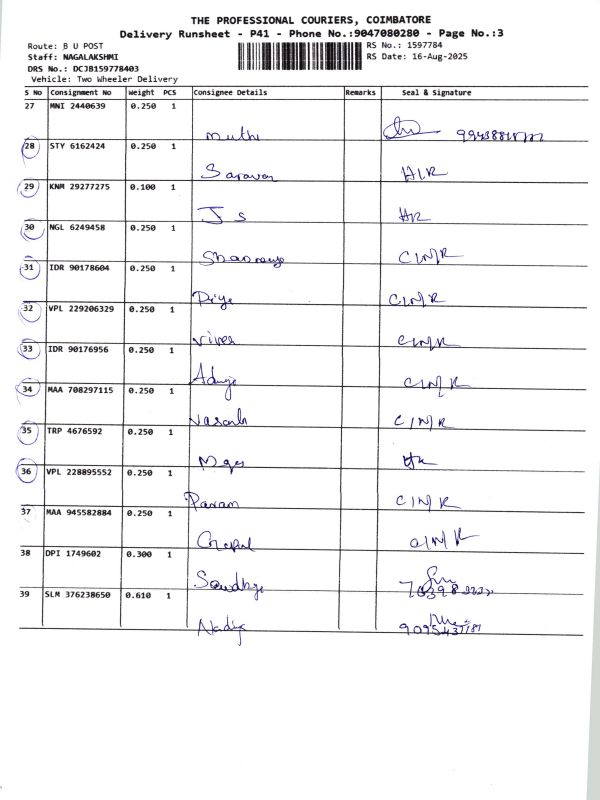 THE PROFESSIONAL COURIERS, COIMBATORE
Delivery Runsheet - P41 - Phone No.:9047080280 - Page No.:3
Route: B U POST
RS No.: 1597784
Staff: NAGALAKSHMI
RS Date: 16-Aug-2025
DRS No.: DCJB159778403
Vehicle: Two Wheeler Delivery
S No Consignment No Weight PCS Consignee Details Remarks Seal & Signature
27 MNI 2440639 0.250 1
Muthu
28 STY 6162424 0.250 1
Saravan H/R
29 KNM 29277275 0.100 1
J S HR
30 NGL 6249458 0.250 1
C/N/R
31 IDR 90178604 0.250 1
Priya C/N/R
32 VPL 229206329 0.250 1
Vivek C/N/R
33 IDR 90176956 0.250 1
C/N/R
34 MAA 708297115 0.250 1
Vasanth C/N/R
35 TRP 4676592 0.250 1
HR
36 VPL 228895552 0.250 1
Pavan C/N/R
37 MAA 945582884 0.250 1
Gopal C/N/R
38 DPI 1749602 0.300 1
39 SLM 376238650 0.610 1
Nadiya